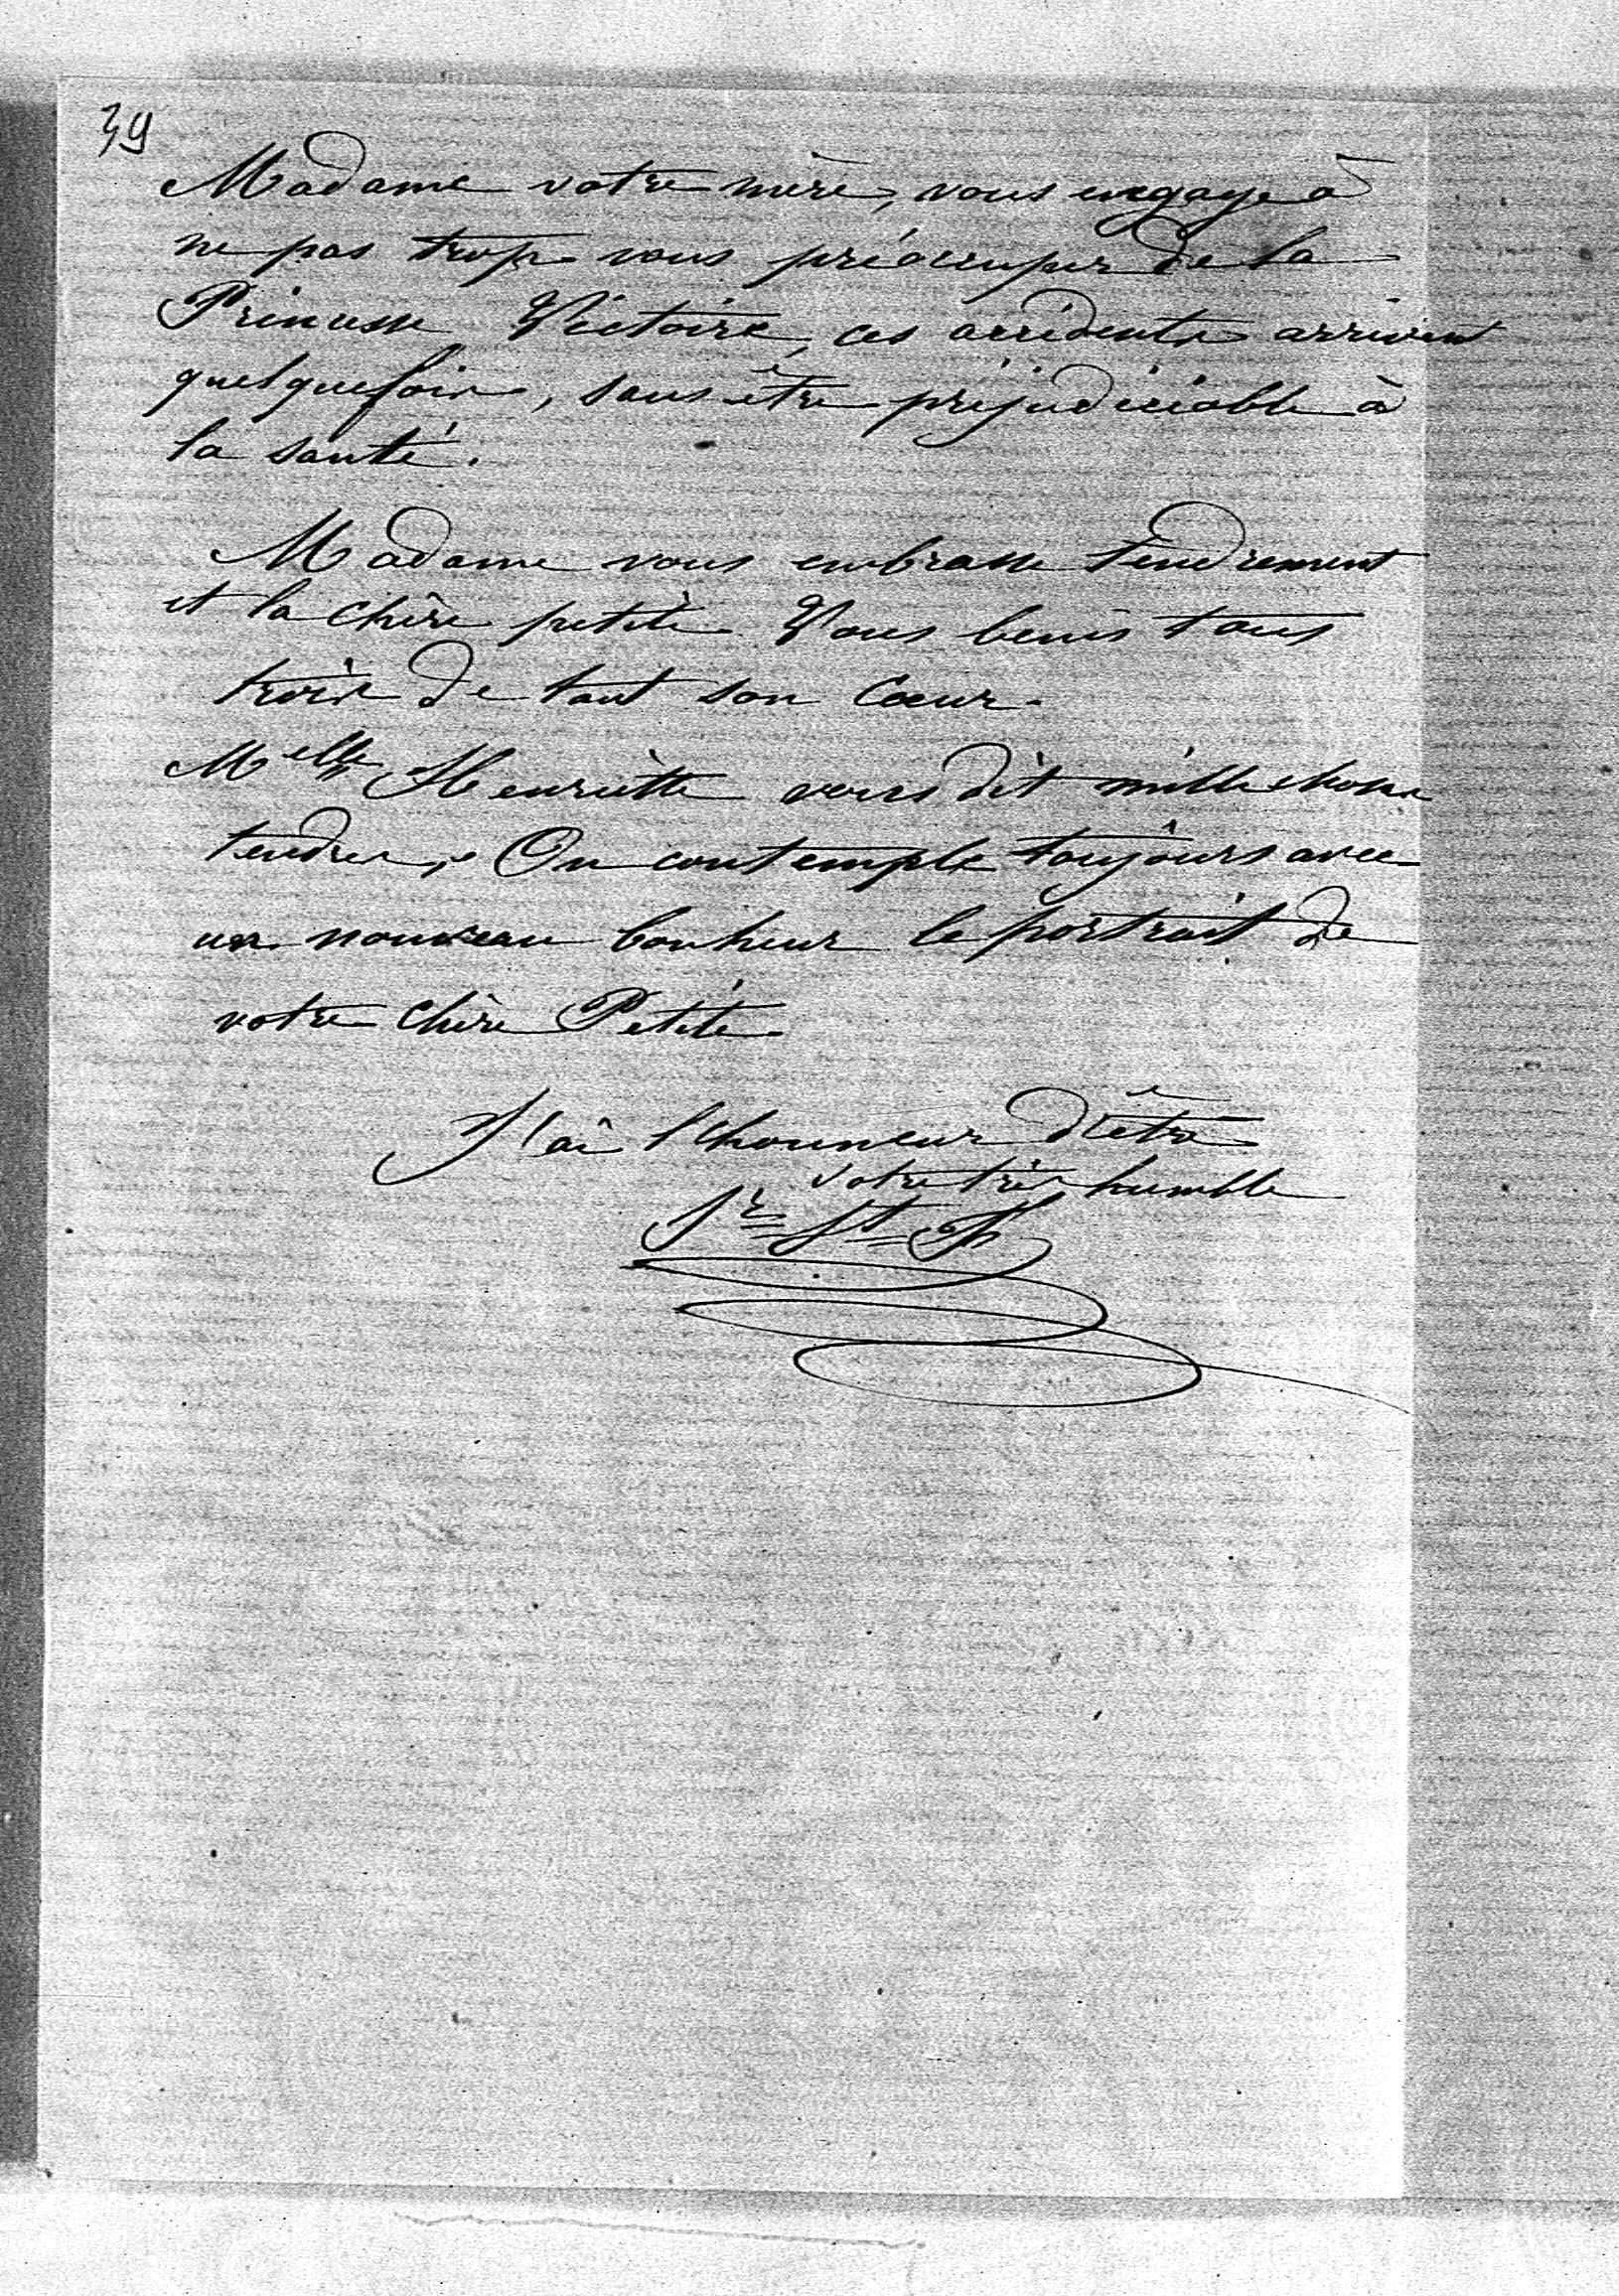 39
Madame votre mère, vous engage à
ne pas trop vous préoccuper de la
Princesse Victoire, ces accidents arrivent
quelquefois, sans être préjudiciable à
la santé.
Madame vous embrasse tendrement
et la chère petite. Vous benis tous
trois de tout son Cœur.
Melle Henriette vous dit mille choses
tendres. On contemple toujours avec
un nouveau bonheur le portrait de
votre chère Petite.
J'ai l'honneur d'être
votre très humble
Sr St